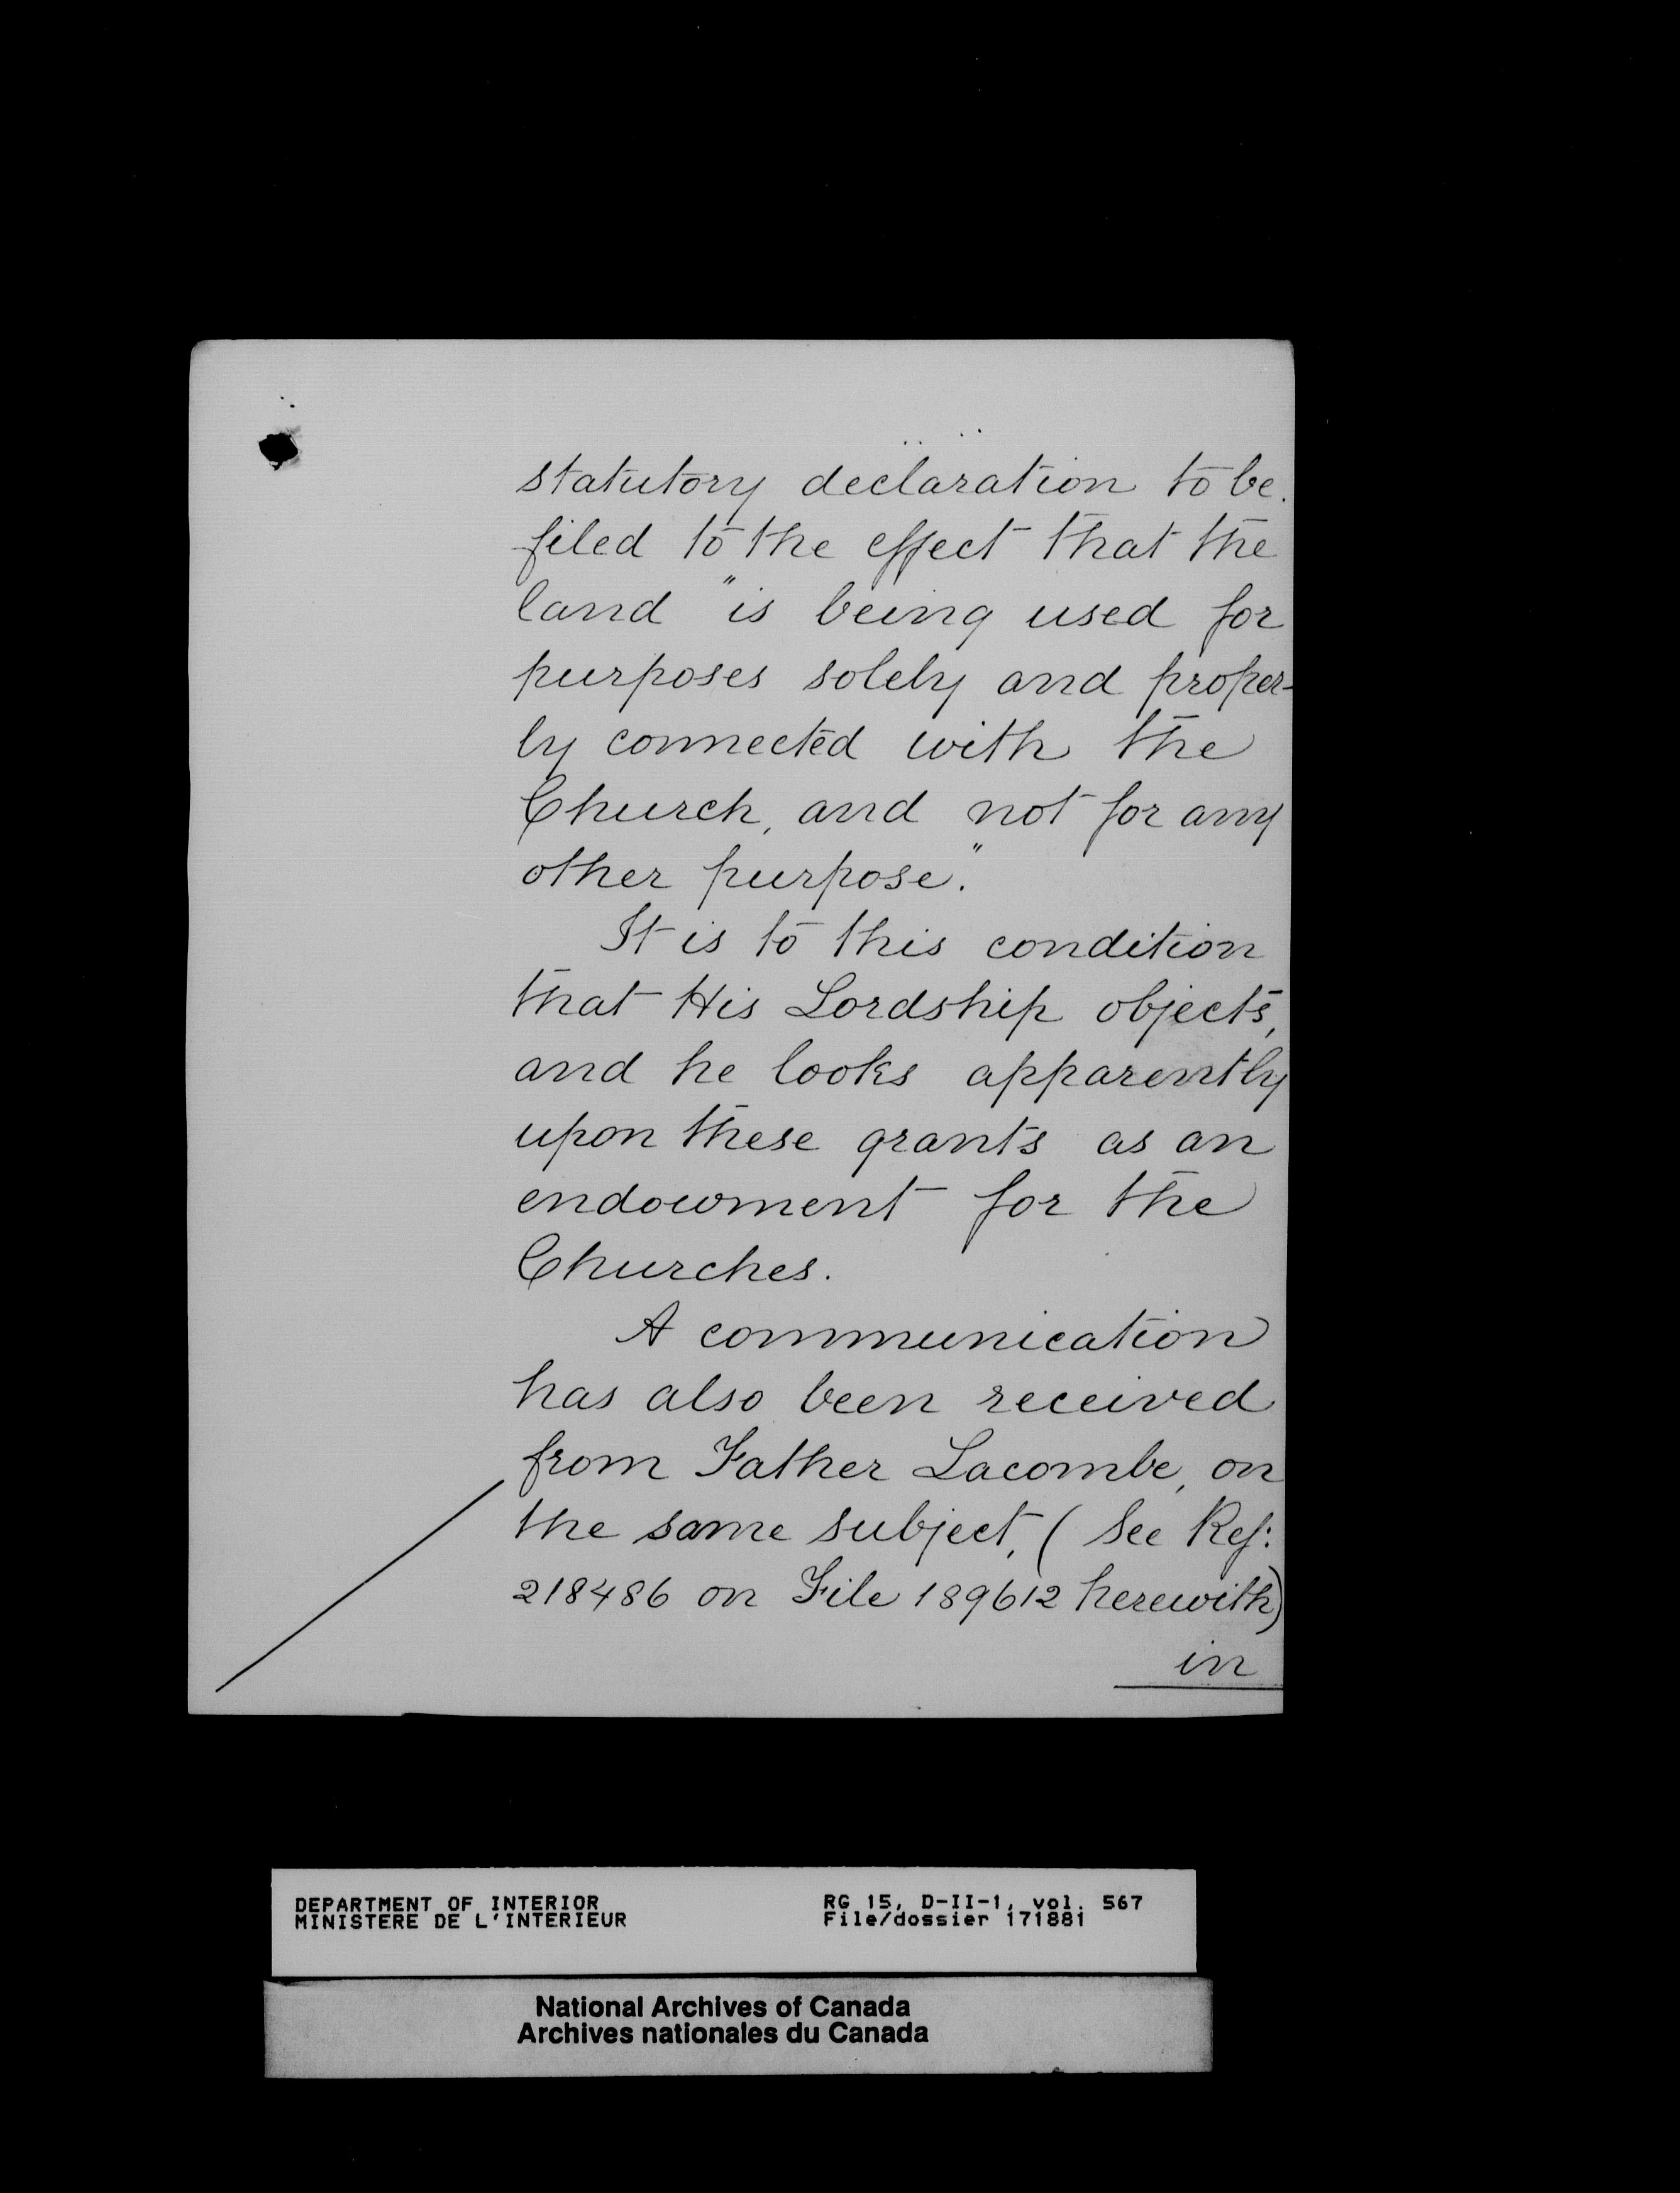 statutory declaration to be
filed to the effect that the
land "is being used for
purposes solely and proper-
ly connected with the
Church, and not for any
other purpose."
It is to this condition
that His Lordship objects,
and he looks apparently
upon these grants as an
endowment for the
Churches.
A communication
has also been received
from Father Lacombe, on
the same subject, (See Ref:
218486 on File 189612 herewith)
in
DEPARTMENT OF INTERIOR
MINISTERE DE L'INTERIEUR
RG 15, D-II-1, vol. 567
File/dossier 171881
National Archives of Canada
Archives nationales du Canada